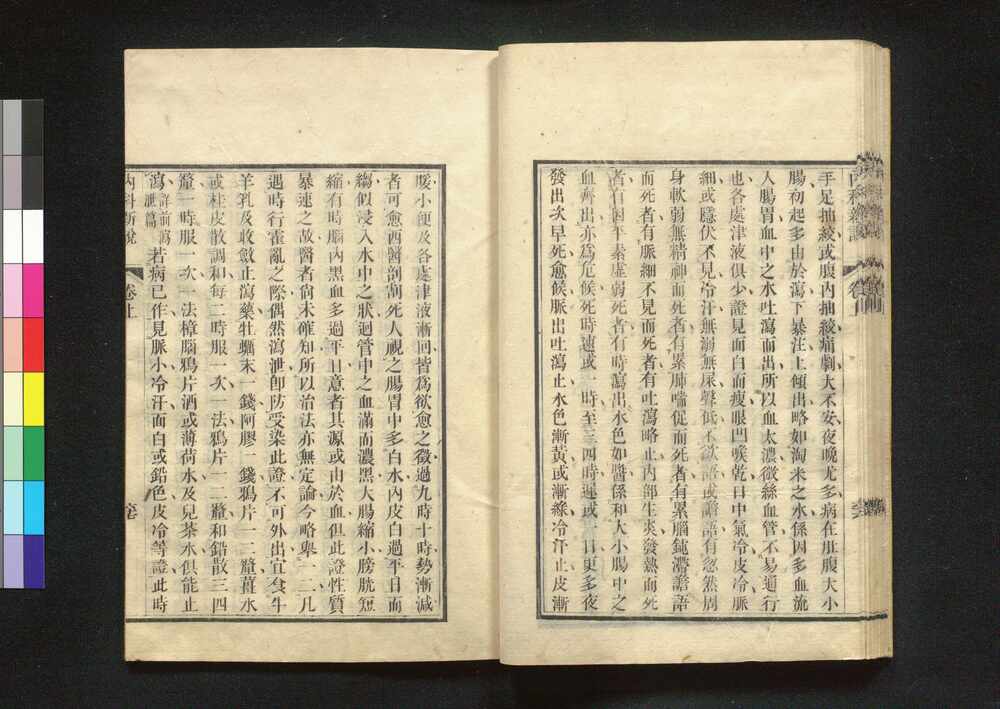 手足抽絞或腹內抽絞痛劇大不安夜晚尤多病在肚腹大小
腸初起多由於瀉下暴注上傾出略如淘米之水係因多血流
入腸胃血中之水吐瀉而出所以血太濃微絲血管不易通行
也各處津液俱少證見面白而瘦眼凹喉乾口中氣冷皮冷脈
細或隱伏不見冷汗無溺無尿聲低不欲語或譫語有忽然周
身軟弱無精神而死者有累肺喘促而死者有累腦鈍瀆譫語
而死者有脈細不見而死者有吐瀉略止內部生炎發熱而死
者有因平素虛弱死者有時瀉出水色如醬係和大小腸中之
血齊出亦爲危候死時速或一時至三四時遲或一日更多夜
發出次早死愈候脈出吐瀉止水色漸黃或漸綠冷汗止皮漸
暖小便及各處津液漸回皆爲欲愈之徵過九時十時勢漸減
者可愈西醫剖割死人視之腸胃中多白水內皮白過平日而
縐似浸入水中之狀迴管中之血滿而濃黑大腸縮小膀胱短
縮有時腦內黑血多過平日意者其源或由於血但此證性質
暴速之故醫者尙未確知所以治法亦無定論今略舉一二凡
遇時行霍亂之際偶然瀉泄卽防受染此證不可外出宜食牛
羊乳及收斂止瀉藥牡蠣末一錢阿膠一錢鴉片一二釐薑水
或桂皮散調和每二時服一次一法鴉片一二釐和鉛散三四
釐一時服一次一法樟腦鴉片酒或薄荷水及兒茶水俱能止
瀉詳前瀉泄篇若病已作見脈小冷汗面白或鉛色皮冷等證此時
內科新說
卷上